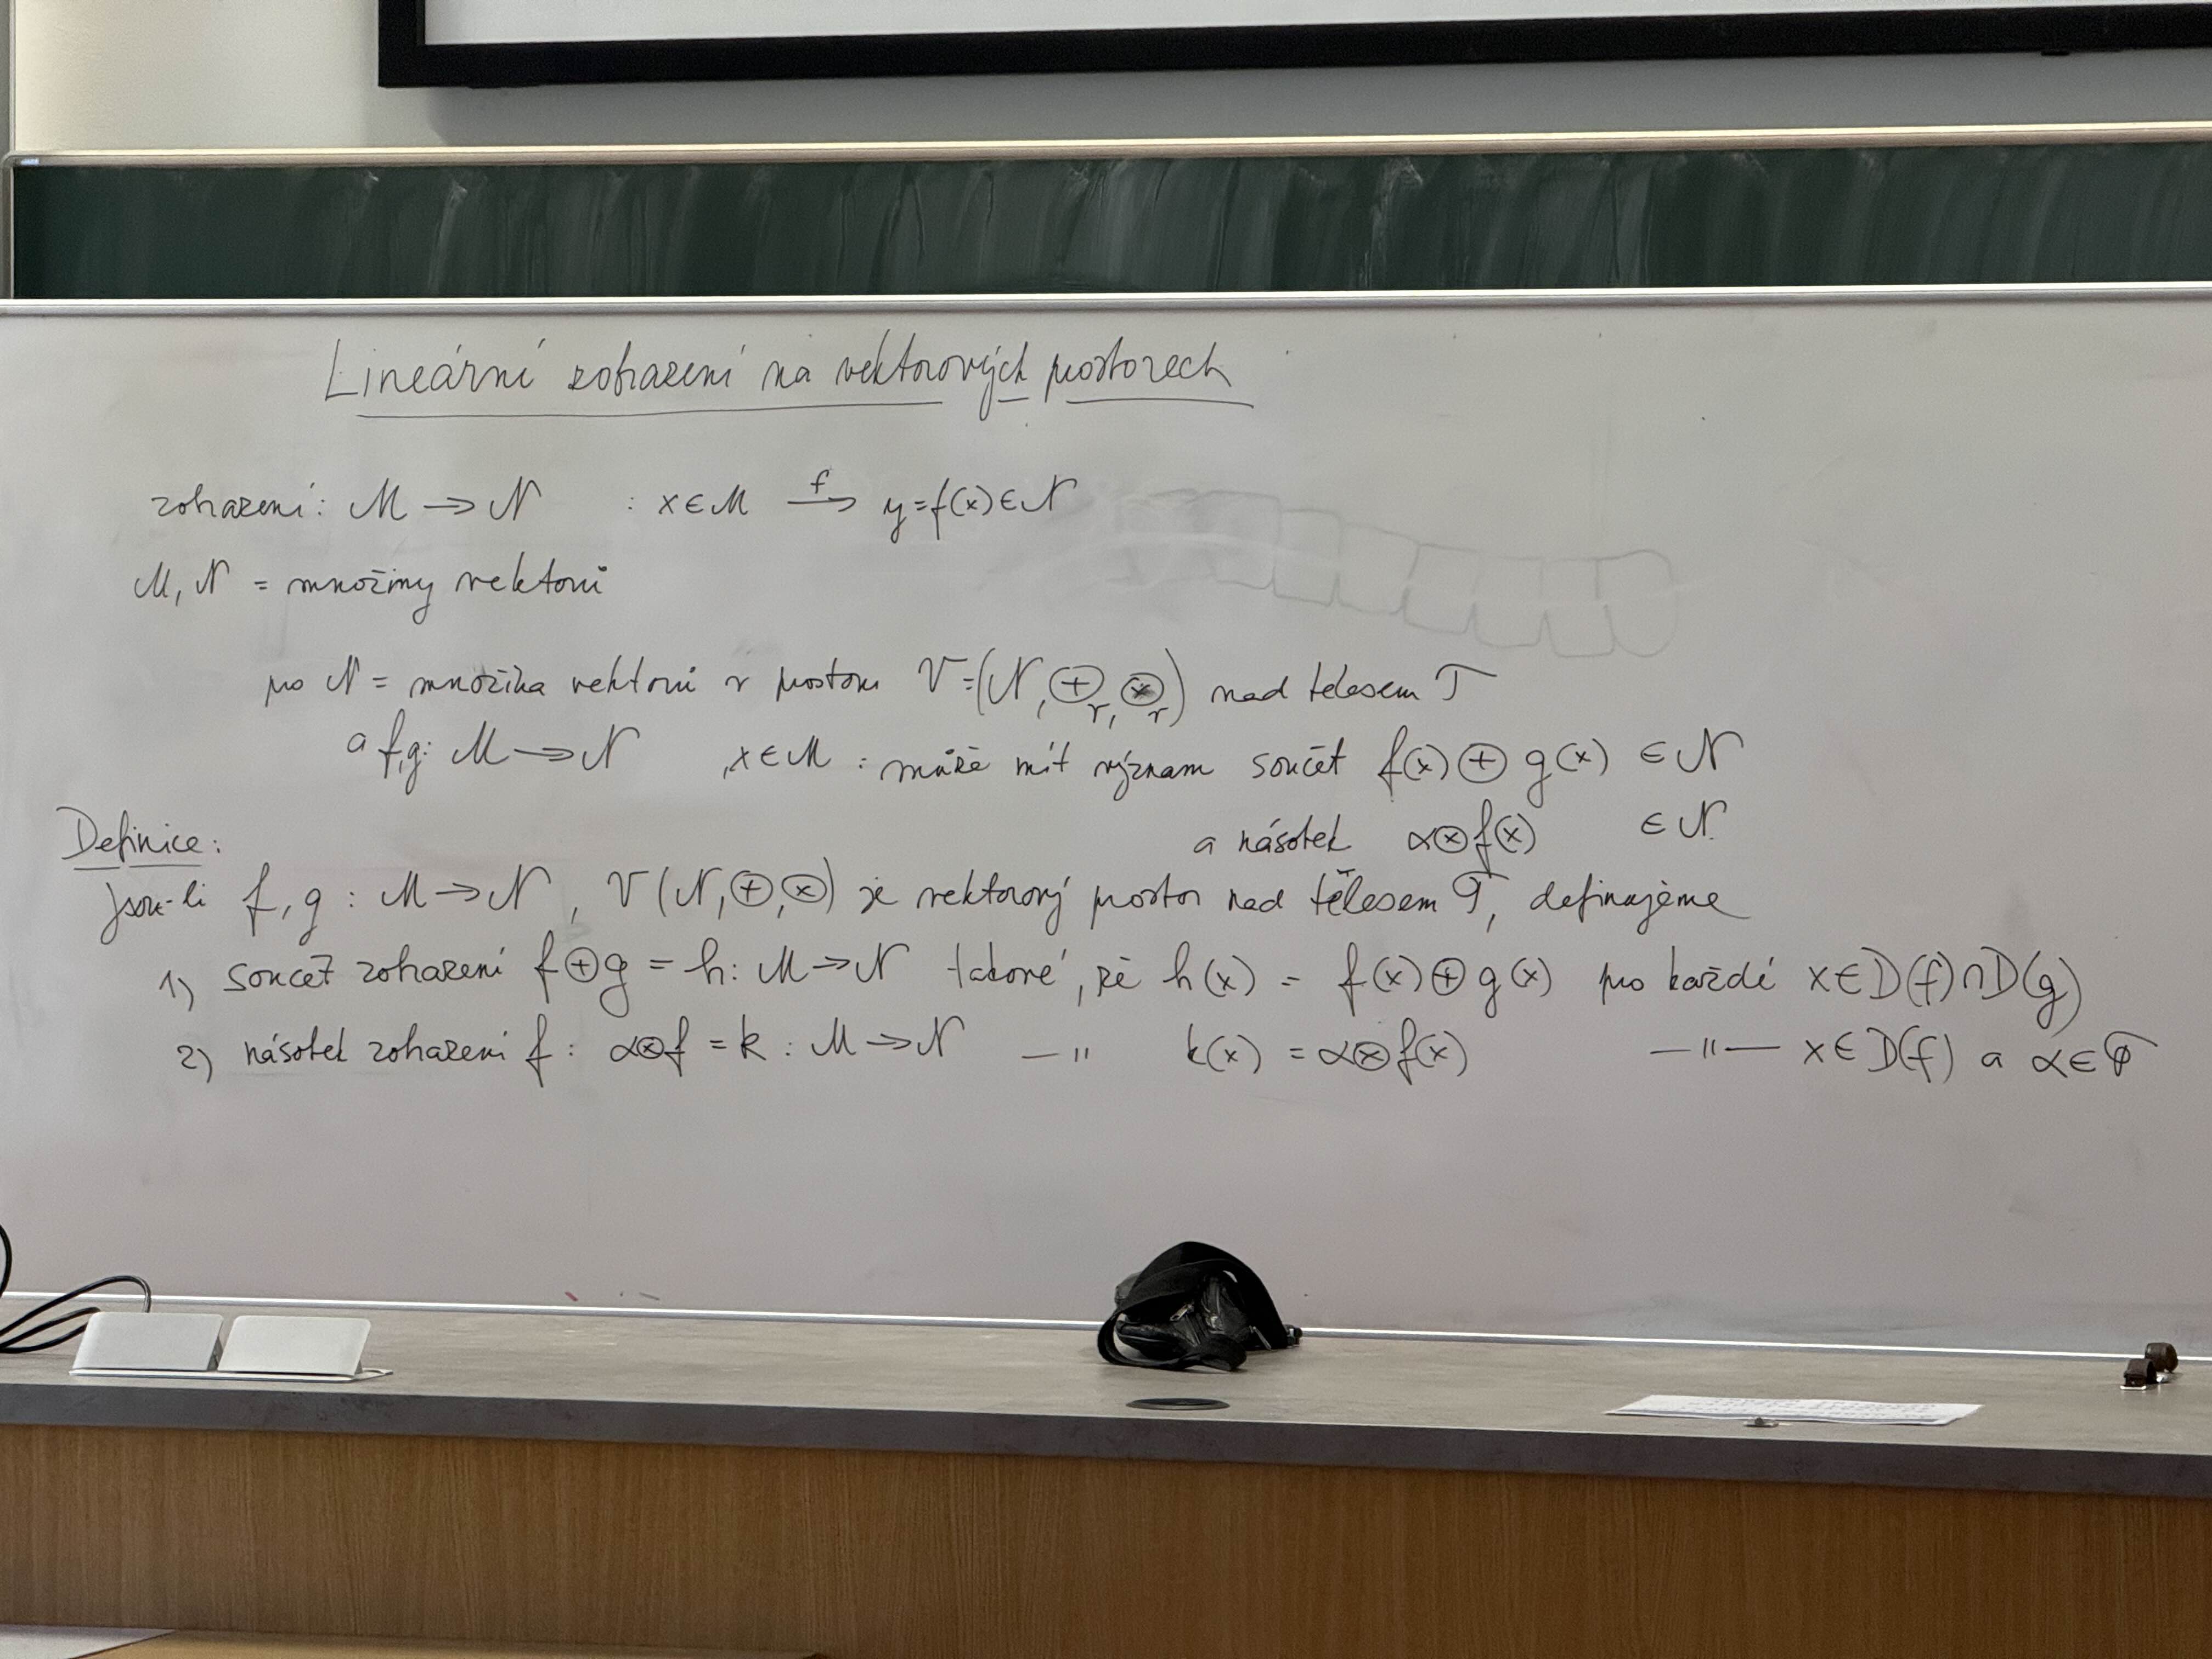 Lineární zobrazení na vektorových prostorech
zobrazení: M → N : x ∈ M →f y = f(x) ∈ N
M, N = množiny vektorů
pro N = množina vektorů v prostoru V = (N, ⊕r, ⊗r) nad tělesem T
a f,g: M → N , x ∈ M : může mít význam součet f(x) ⊕ g(x) ∈ N
a násobek α⊗f(x) ∈ N
Definice:
Jsou-li f, g : M → N , V (N, ⊕, ⊗) je vektorový prostor nad tělesem T, definujeme
1) součet zobrazení f⊕g = h: M → N takové, že h(x) = f(x) ⊕ g(x) pro každé x ∈ D(f) ∩ D(g)
2) násobek zobrazení f: α⊗f = k : M → N —"— k(x) = α⊗f(x) —"— x ∈ D(f) a α ∈ T